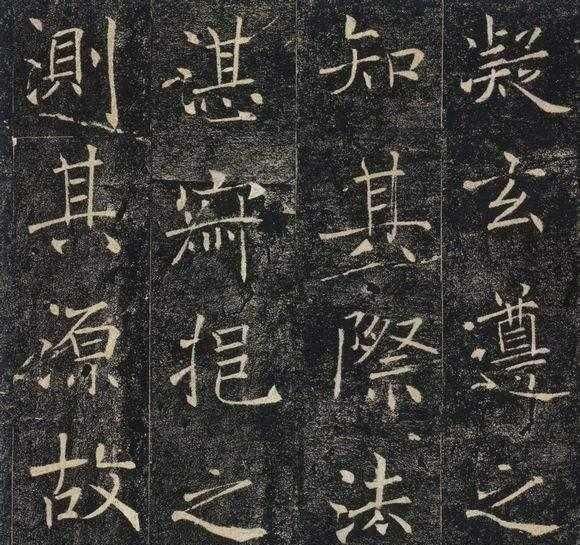 凝玄遵之
知其際法
湛寂挹之
測其源故